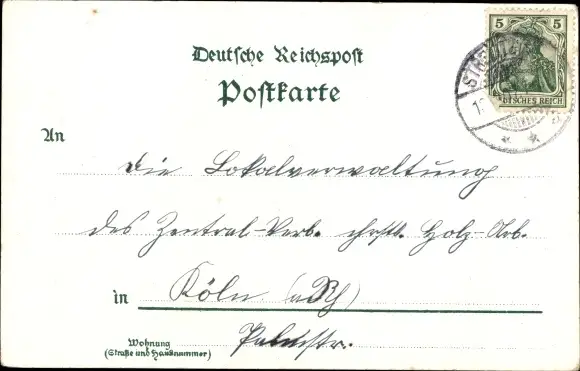 Deutsche Reichspost
Postkarte
5 5
DEUTSCHES REICH
An
die Lokalverwaltung
des Zentral-Verb. christl. Holz-Arb.
in Köln (a/Rh)
Wohnung
(Straße und Hausnummer)
Palmstr.